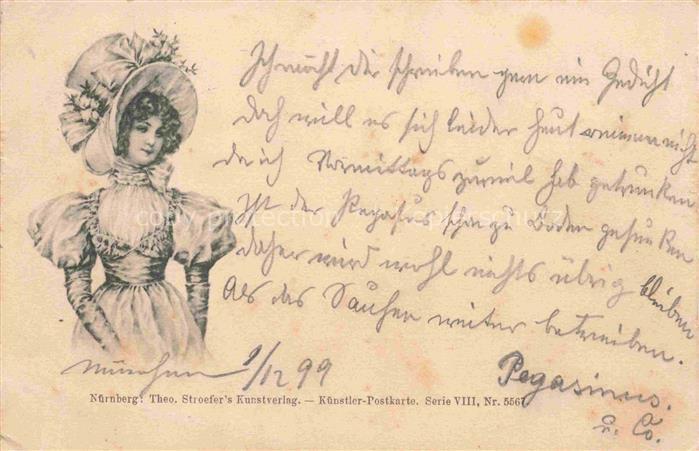 Ich möcht dir schreiben gern ein Gedicht
doch will es sich leider heut reimen nicht
da ich Vormittags zuviel hab getrunken
Ist der Pegasus schon zu Boden gesunken
daher wird wohl nichts übrig bleiben
Als das Saufen weiter betreiben.
Pegasinus.
u. Co.
München 9/12 99
Nürnberg: Theo. Stroefer's Kunstverlag. — Künstler-Postkarte. Serie VIII, Nr. 5567